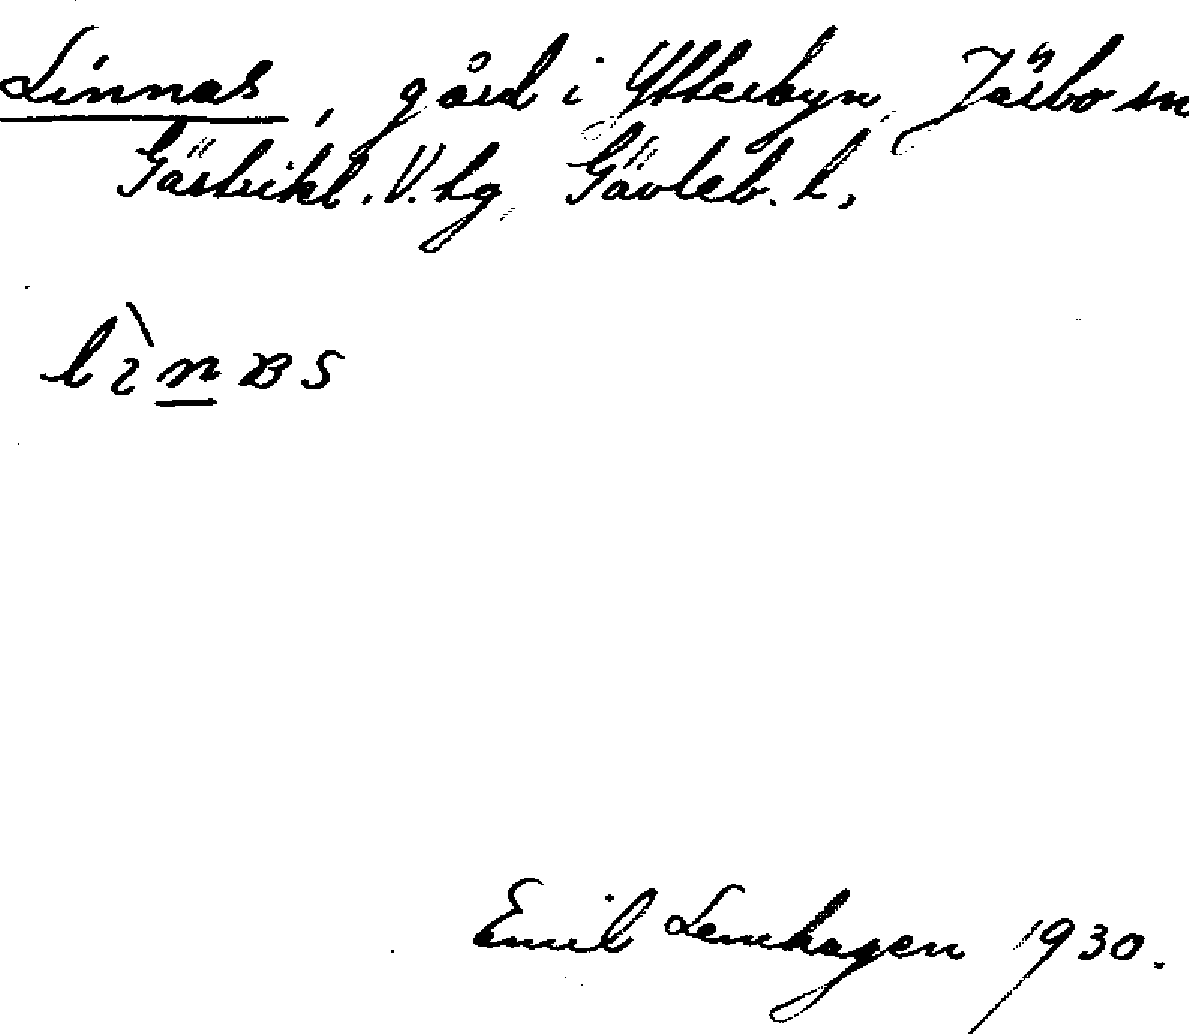 Linnas, gård i Ytterbyn, Järbo sn
Gästrikl. V. tg, Gävleb. l.
lìnas
Emil Lenhagen 1930.